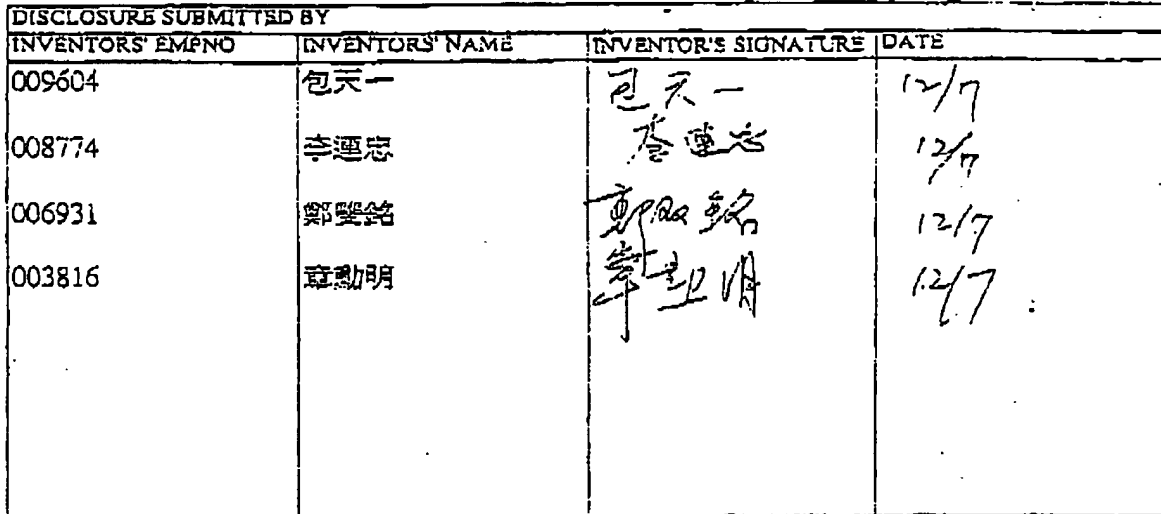 DISCLOSURE SUBMITTED BY
INVENTORS' EMPNO INVENTORS' NAME INVENTOR'S SIGNATURE DATE
009604 包天一 包天一 12/7
008774 李連忠 李連忠 12/7
006931 鄭雙銘 鄭双銘 12/7
003816 章勳明 章勳明 12/7